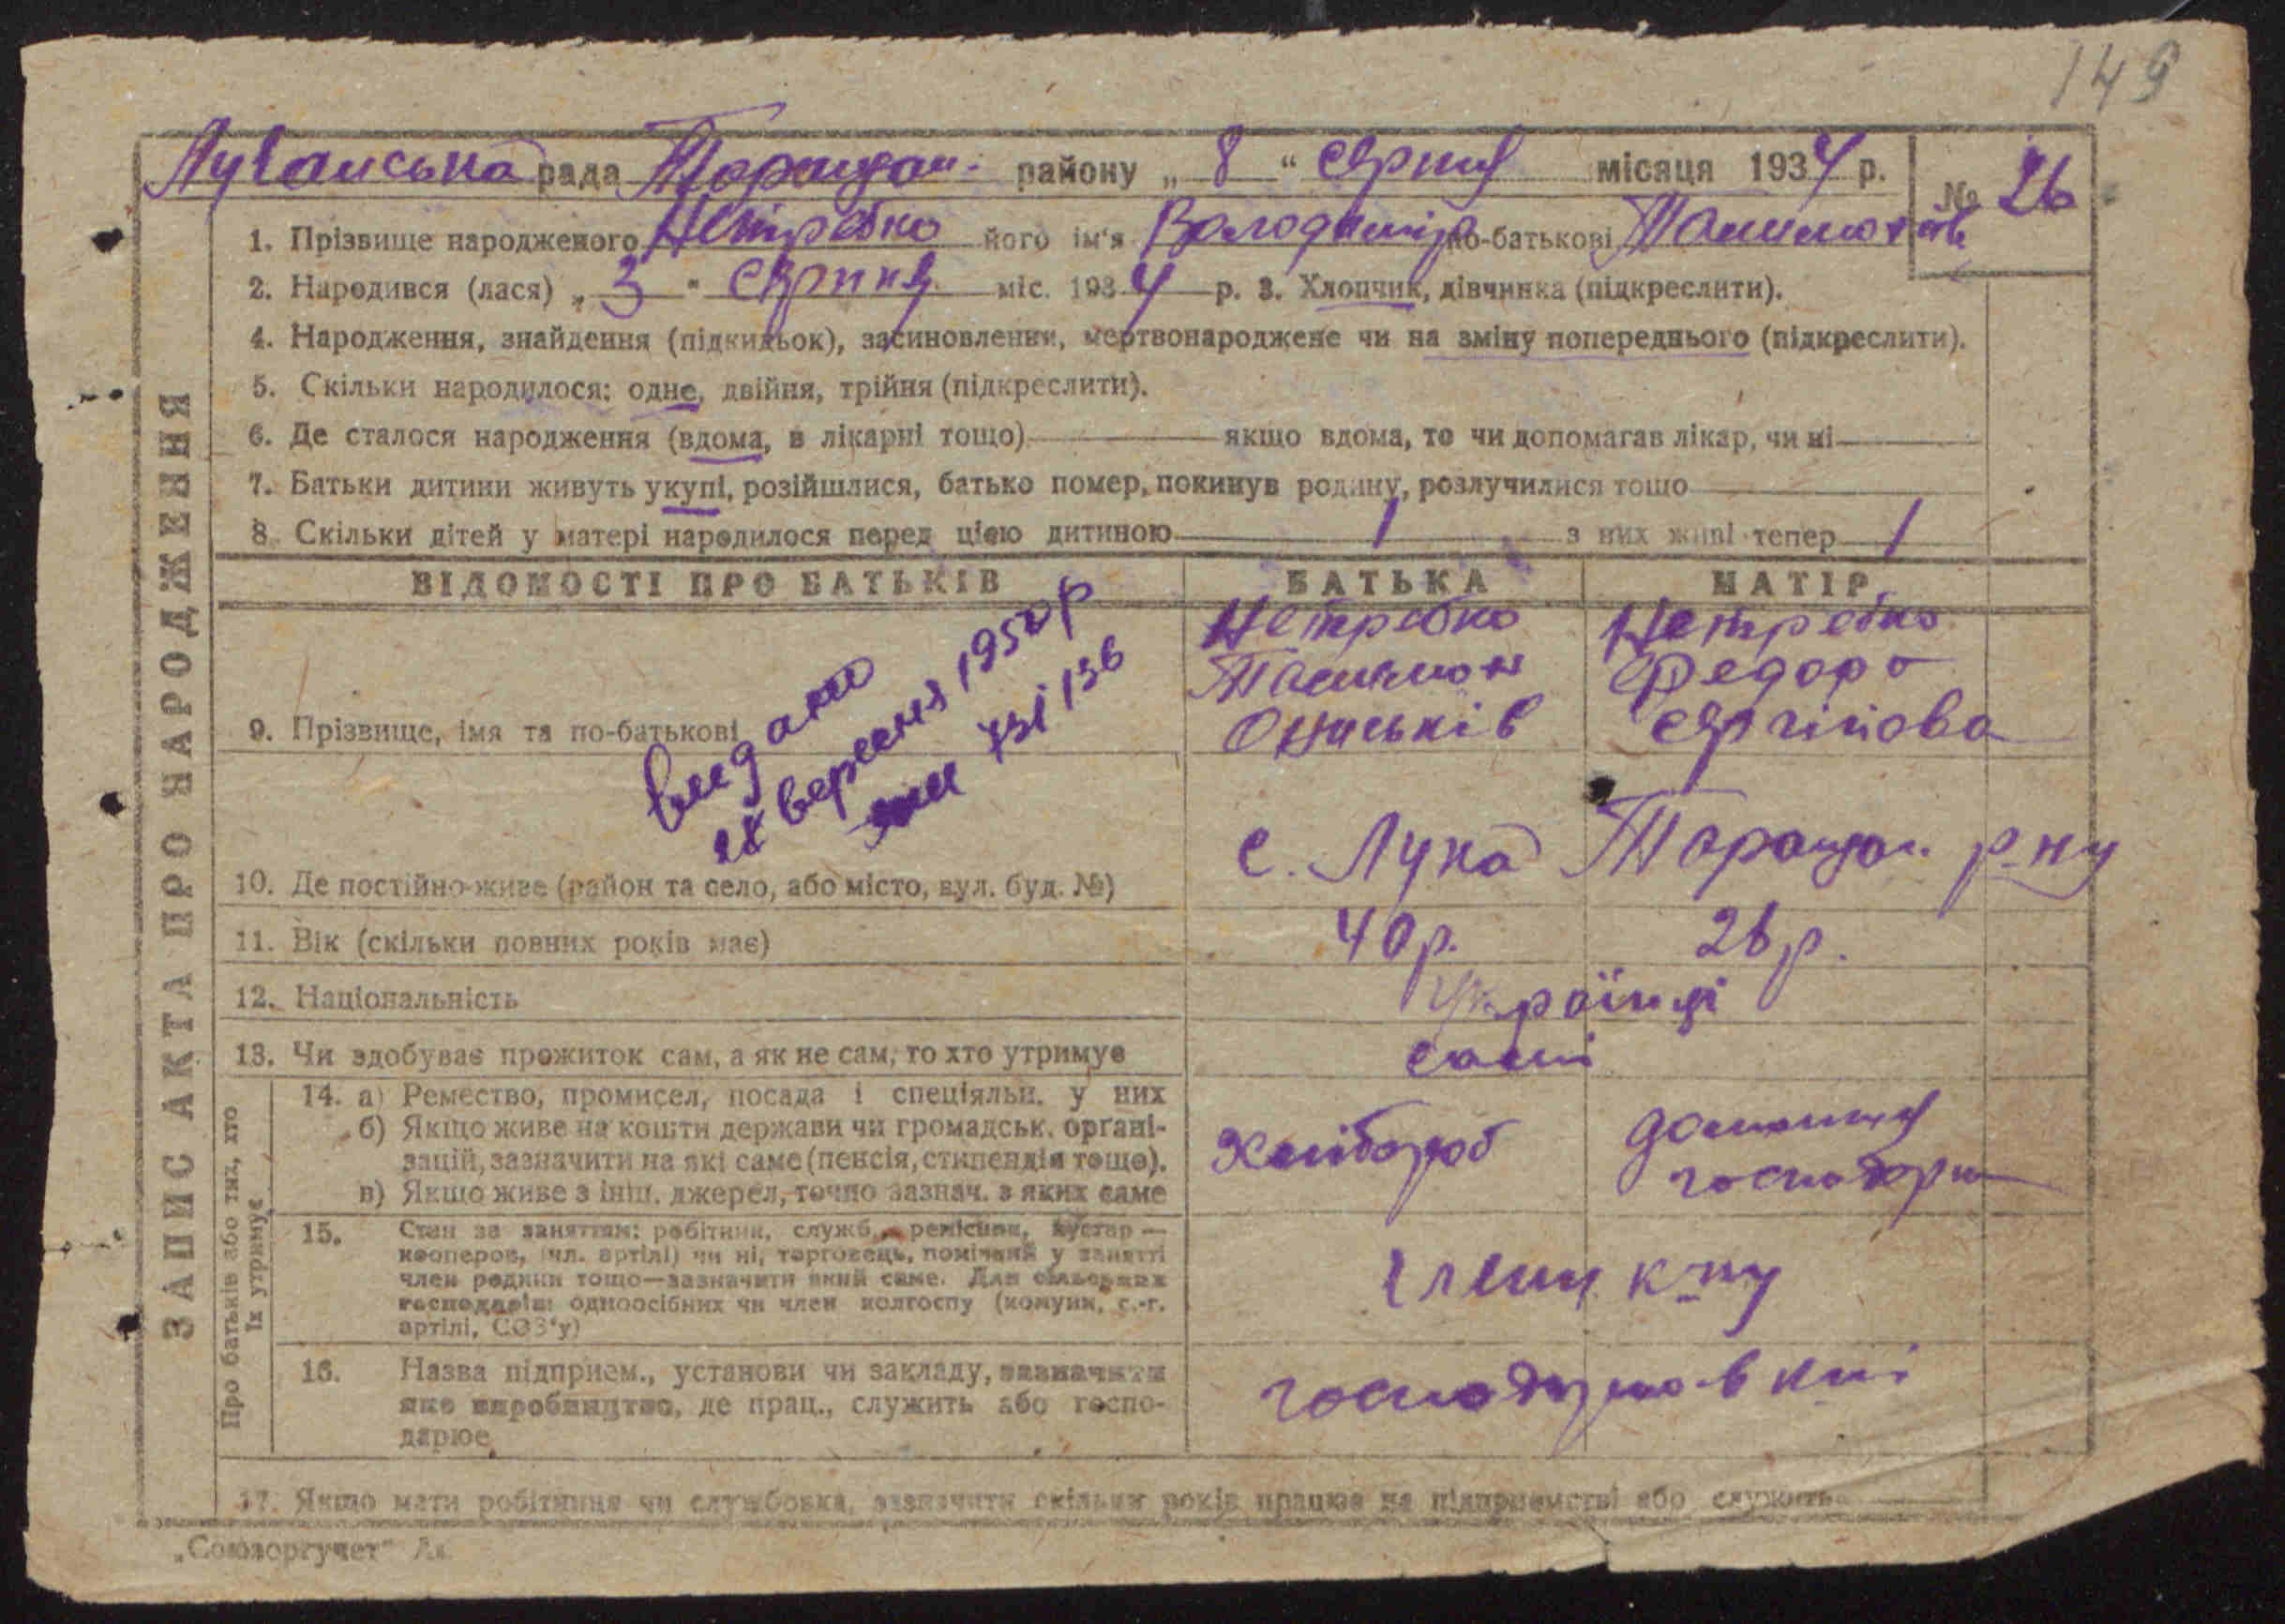 149
Луганська рада Таращан. району „8“ серпня місяця 1934 р. № 26
1. Прізвище народженого Нетребко його ім'я Володимір по-батькові
2. Народився (лася) „3“ серпня міс. 1934 р. 3. Хлопчик, дівчинка (підкреслити).
4. Народження, знайдення (підкидьок), засиновлення, мертвонароджене чи на зміну попереднього (підкреслити).
5. Скільки народилося: одне, двійня, трійня (підкреслити).
6. Де сталося народження (вдома, в лікарні тощо) якщо вдома, то чи допомагав лікар, чи ні
7. Батьки дитини живуть укупі, розійшлися, батько помер, покинув родину, розлучилися тощо
8. Скільки дітей у матері народилося перед цією дитиною 1 з них живі тепер 1
ЗАПИС АКТА ПРО НАРОДЖЕННЯ
ВІДОМОСТІ ПРО БАТЬКІВ БАТЬКА МАТІР
9. Прізвище, імя та по-батькові
Нетребко Нетребко
Федора
Ониськів
видано
вересня 1950 р
136
10. Де постійно живе (район та село, або місто, вул. буд. №) с. Лука Таращан. р-ну
11. Вік (скільки повних років має) 40 р. 26 р.
12. Національність Українці
13. Чи здобуває прожиток сам, а як не сам, то хто утримує самі
Про батьків або тих, хто їх утримує
14. а) Ремество, промисел, посада і спеціяльн. у них
б) Якщо живе на кошти держави чи громадськ. органі-
зацій, зазначити на які саме (пенсія, стипендія тощо).
в) Якщо живе з інш. джерел, точно зазнач. з яких саме
Хлібороб домашня
господарка
15. Стан за заняттям: робітник, служб., ремісник, кустар —
кооперов, (чл. артілі) чи ні, торговець, помічний у занятті
член родини тощо—зазначити який саме. Для сільських
господарів: одноосібних чи член колгоспу (комуни, с.-г.
артілі, СОЗ'у)
члени к-пу
16. Назва підприєм., установи чи закладу, зазначити
яке виробництво, де прац., служить або госпо-
дарює
17. Якщо мати робітниця чи службовка, зазначити скільки років працює на підприємстві або служить
„Союзоргучет“